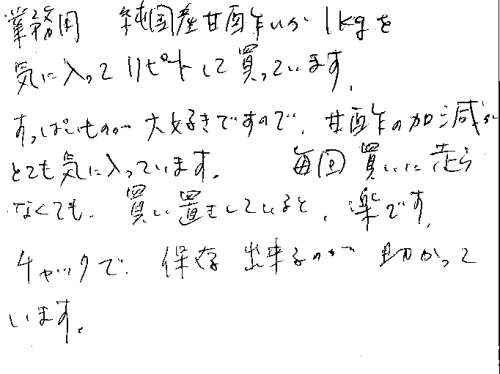 業務用 純国産甘酢いか1kgを
気に入ってリピートして買っています。
すっぱいものが大好きですので、甘酢の加減が
とても気に入っています。 毎回買いに走ら
なくても、買い置きしていると、楽です。
チャックで、保存出来るのが助かって
います。